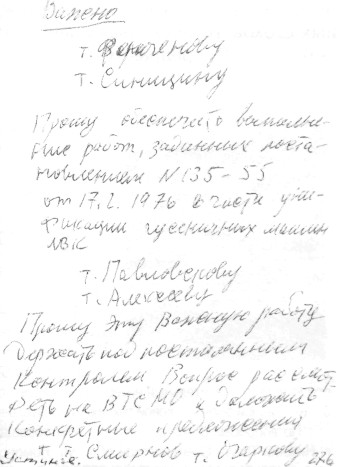 Важно
т. Вороченову
т. Синицину
Прошу обеспечить выполне-
ние работ, заданных поста-
новлением N 135-55
от 17.2.1976 в части уни-
фикации гусеничных машин
МВК
т. Павловскому
т. Алексееву
Прошу эту Важную работу
Держать под постоянным
Контролем Вопрос рассмот-
реть на ВТС МО и доложить
Конкретные предложения
т. Смирнов т. Озаркову 27.6